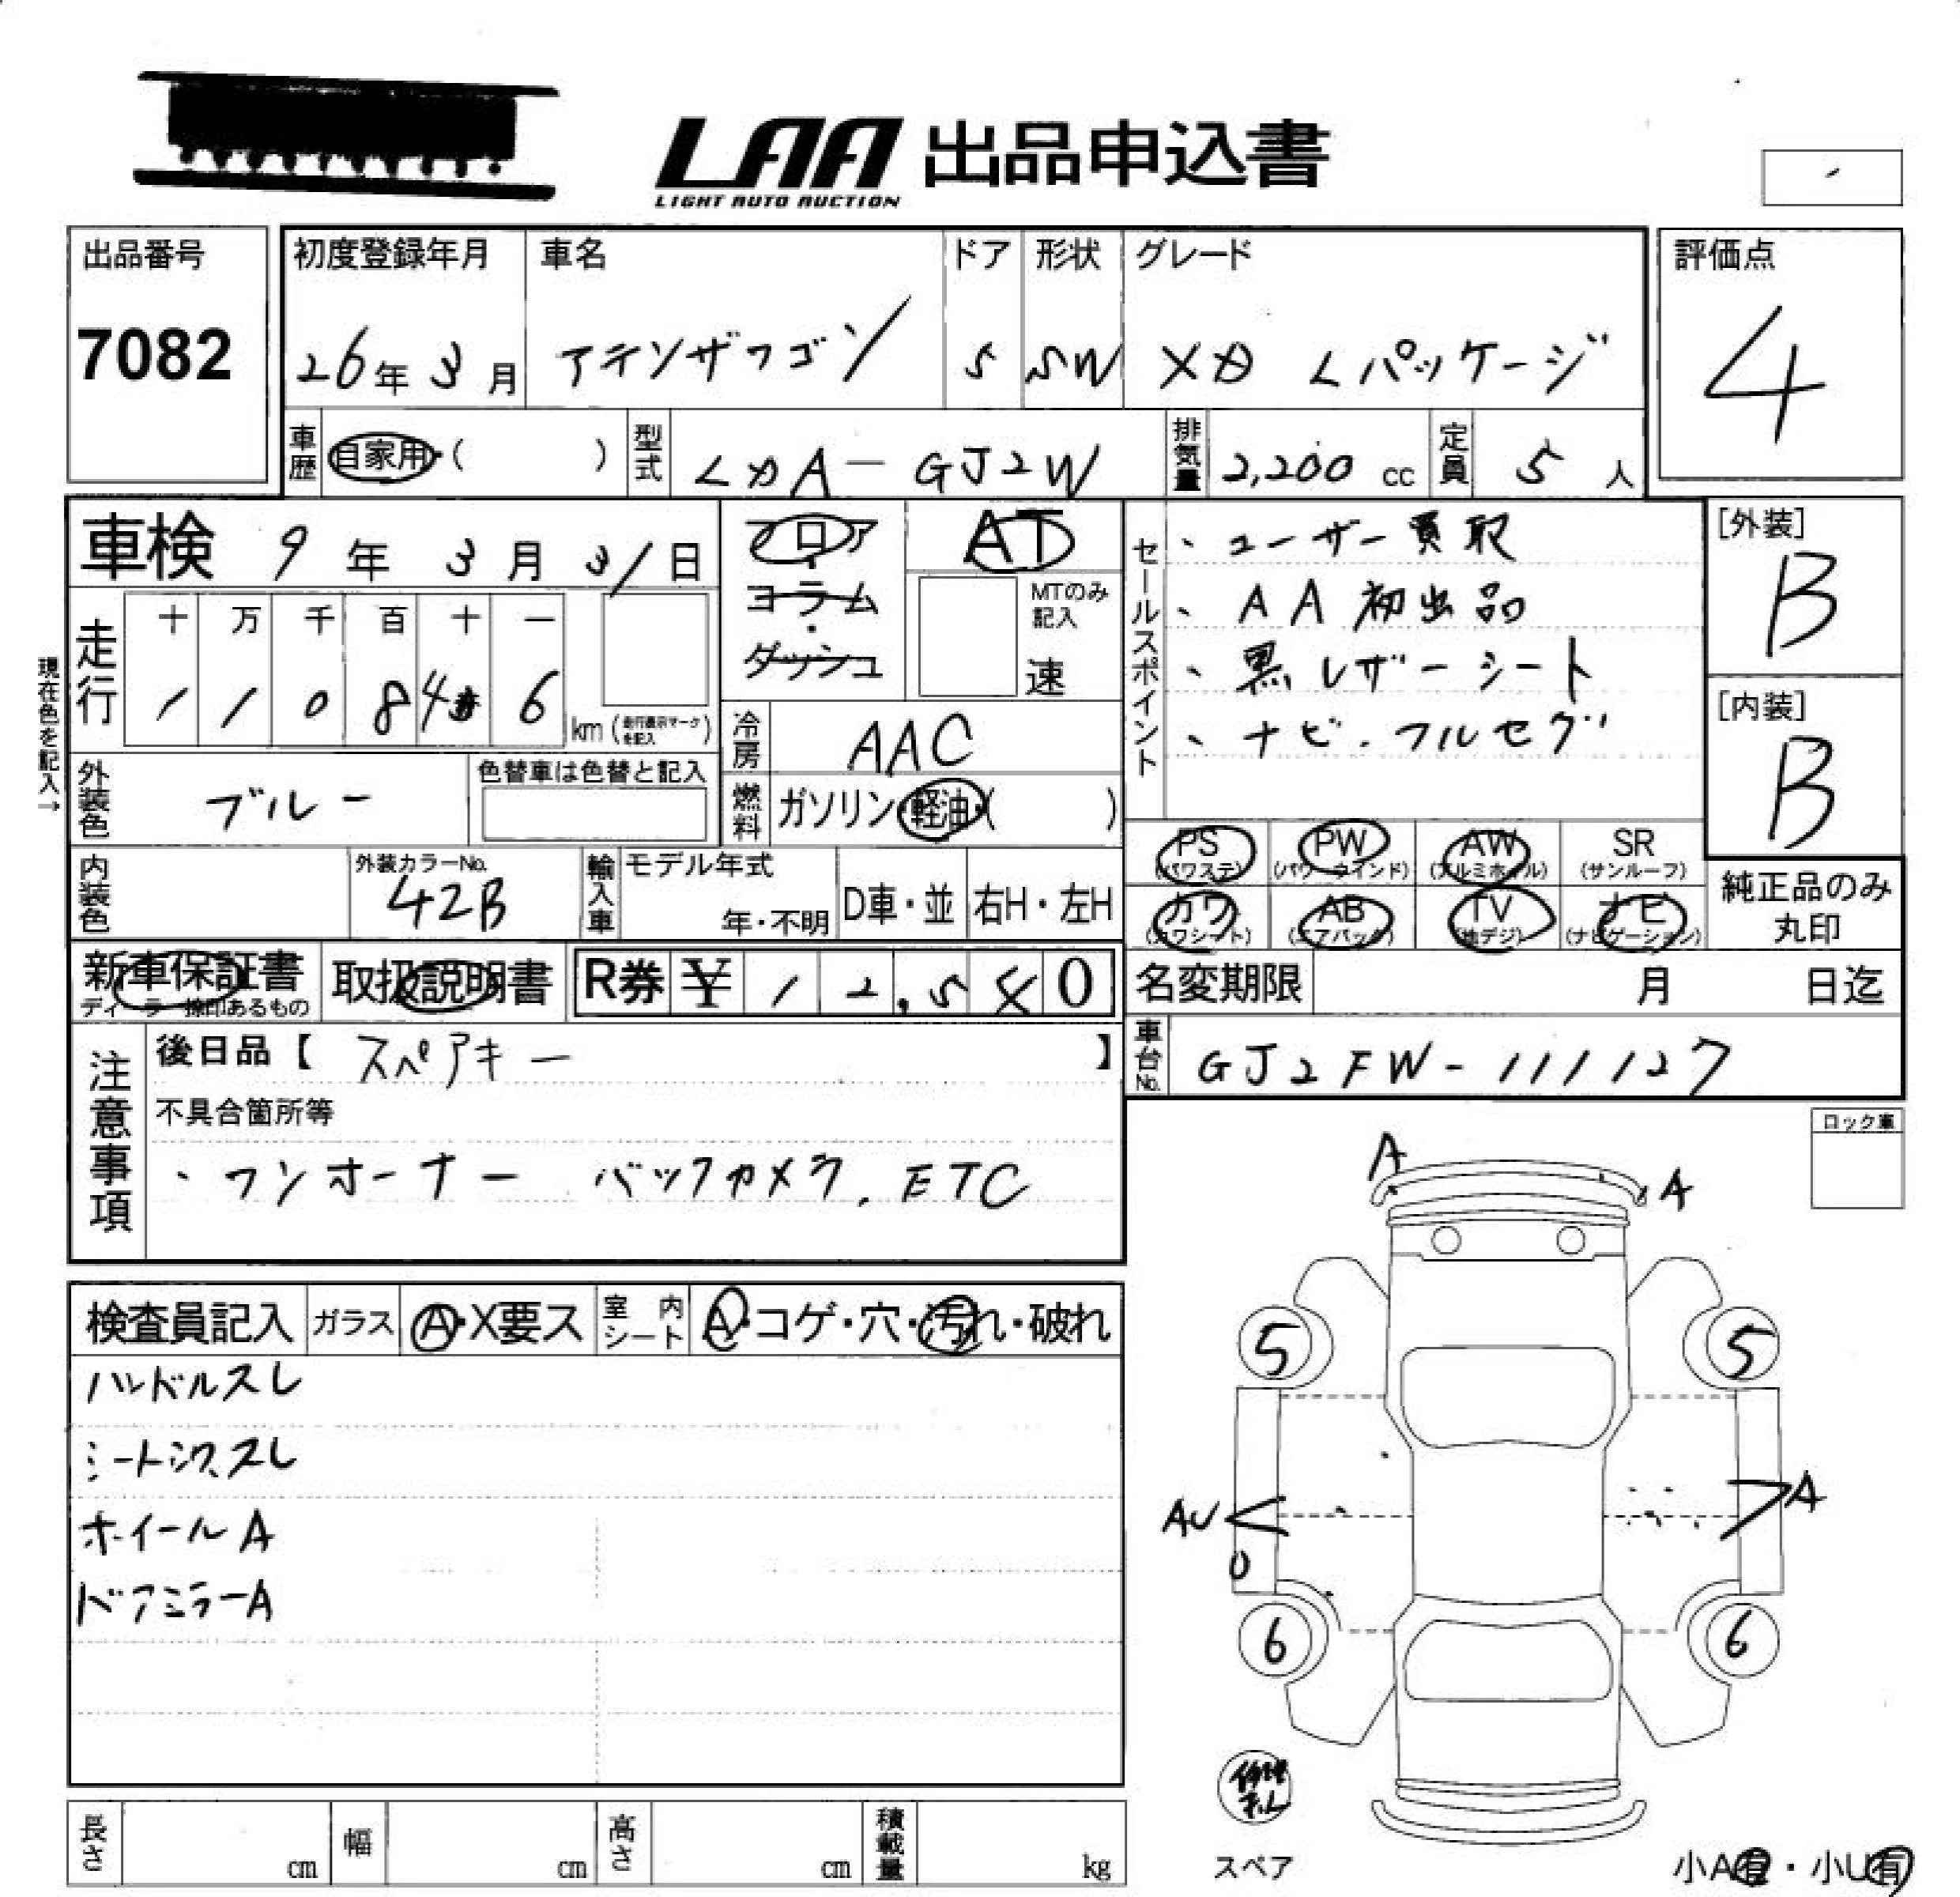 LAA 出品申込書
LIGHT AUTO AUCTION
出品番号
7082
初度登録年月
26年3月
車名
アテンザワゴン
ドア
5
形状
SW
グレード
XD Lパッケージ
評価点
4
車歴 自家用・( )
型式 LDA-GJ2W
排気量 2,200 cc
定員 5 人
車検 9年3月31日
フロア・コラム・ダッシュ
AT
MTのみ記入
速
現在色を記入→
走行
十 万 千 百 十 一
1 1 0 8 4 6
km(走行表示マークを記入)
冷房 AAC
外装色 ブルー
色替車は色替と記入
燃料 ガソリン・軽油・( )
内装色
外装カラーNo.
42B
輸入車
モデル年式
年・不明
D車・並
右H・左H
セールスポイント
、ユーザー買取
、AA初出品
、黒レザーシート
、ナビ.フルセグ
[外装]
B
[内装]
B
PS (パワステ)
PW (パワーウインド)
AW (アルミホイル)
SR (サンルーフ)
カワ (カワシート)
AB (エアバック)
TV (地デジ)
ナビ (ナビゲーション)
純正品のみ丸印
新車保証書
ディーラー捺印あるもの
取扱説明書
R券 ¥
名変期限 月 日迄
車台No. GJ2FW-111127
注意事項
後日品【 スペアキー 】
不具合箇所等
・ワンオーナー バックカメラ. ETC
ロック車
検査員記入
ガラス A・X要ス
室内シート A・コゲ・穴・汚れ・破れ
ハンドルスレ
シートシワ、スレ
ホイールA
ドアミラーA
A
A
5
5
AU
A
U
6
6
修理キット
スペア
小A有・小U有
長さ cm
幅 cm
高さ cm
積載量 kg